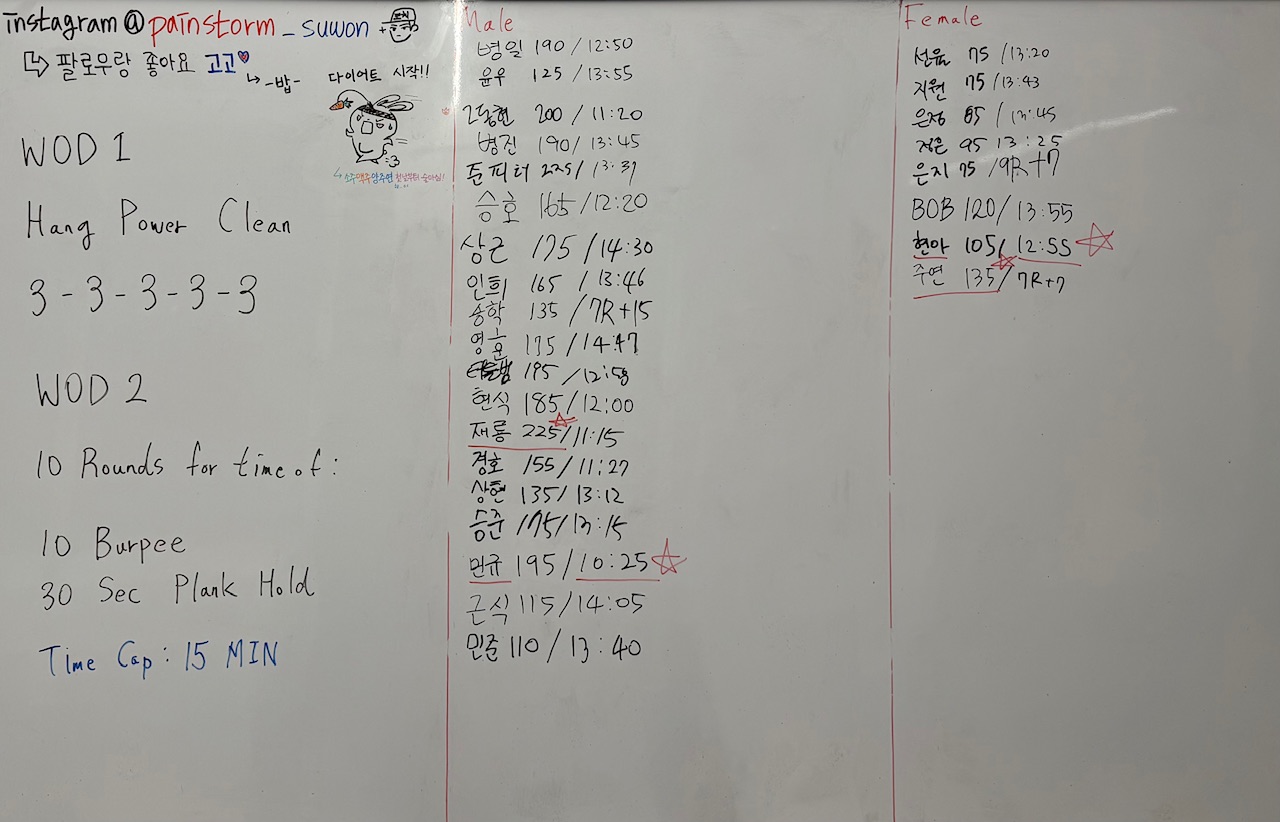 instagram@painstorm_suwon
팔로우랑 좋아요 고고
-밥-
다이어트 시작!!
소주맥주양주연
WOD 1
Hang Power Clean
3-3-3-3-3
WOD 2
10 Rounds for time of:
10 Burpee
30 Sec Plank Hold
Time Cap: 15 MIN
Male
병일 190 / 12:50
윤우 125 / 13:55
200 / 11:20
병진 190 / 13:45
준피터 225 /
승호 165 / 12:20
상근 175 / 14:30
인희 165 / 13:46
승학 135 / 7R+15
영훈 175 / 14:47
195 / 12:58
현식 185 / 12:00
재룡 225 / 11:15
경호 155 / 11:27
상현 135 / 13:12
승준 175 / 13:15
민규 195 / 10:25
근식 115 / 14:05
민준 110 / 13:40
Female
75 / 13:20
지원 75 / 13:43
은정 / 13:45
정은 95 13:25
은지 75 / 9R+7
BOB 120 / 13:55
현아 105 / 12:55
주연 135 / 7R+7